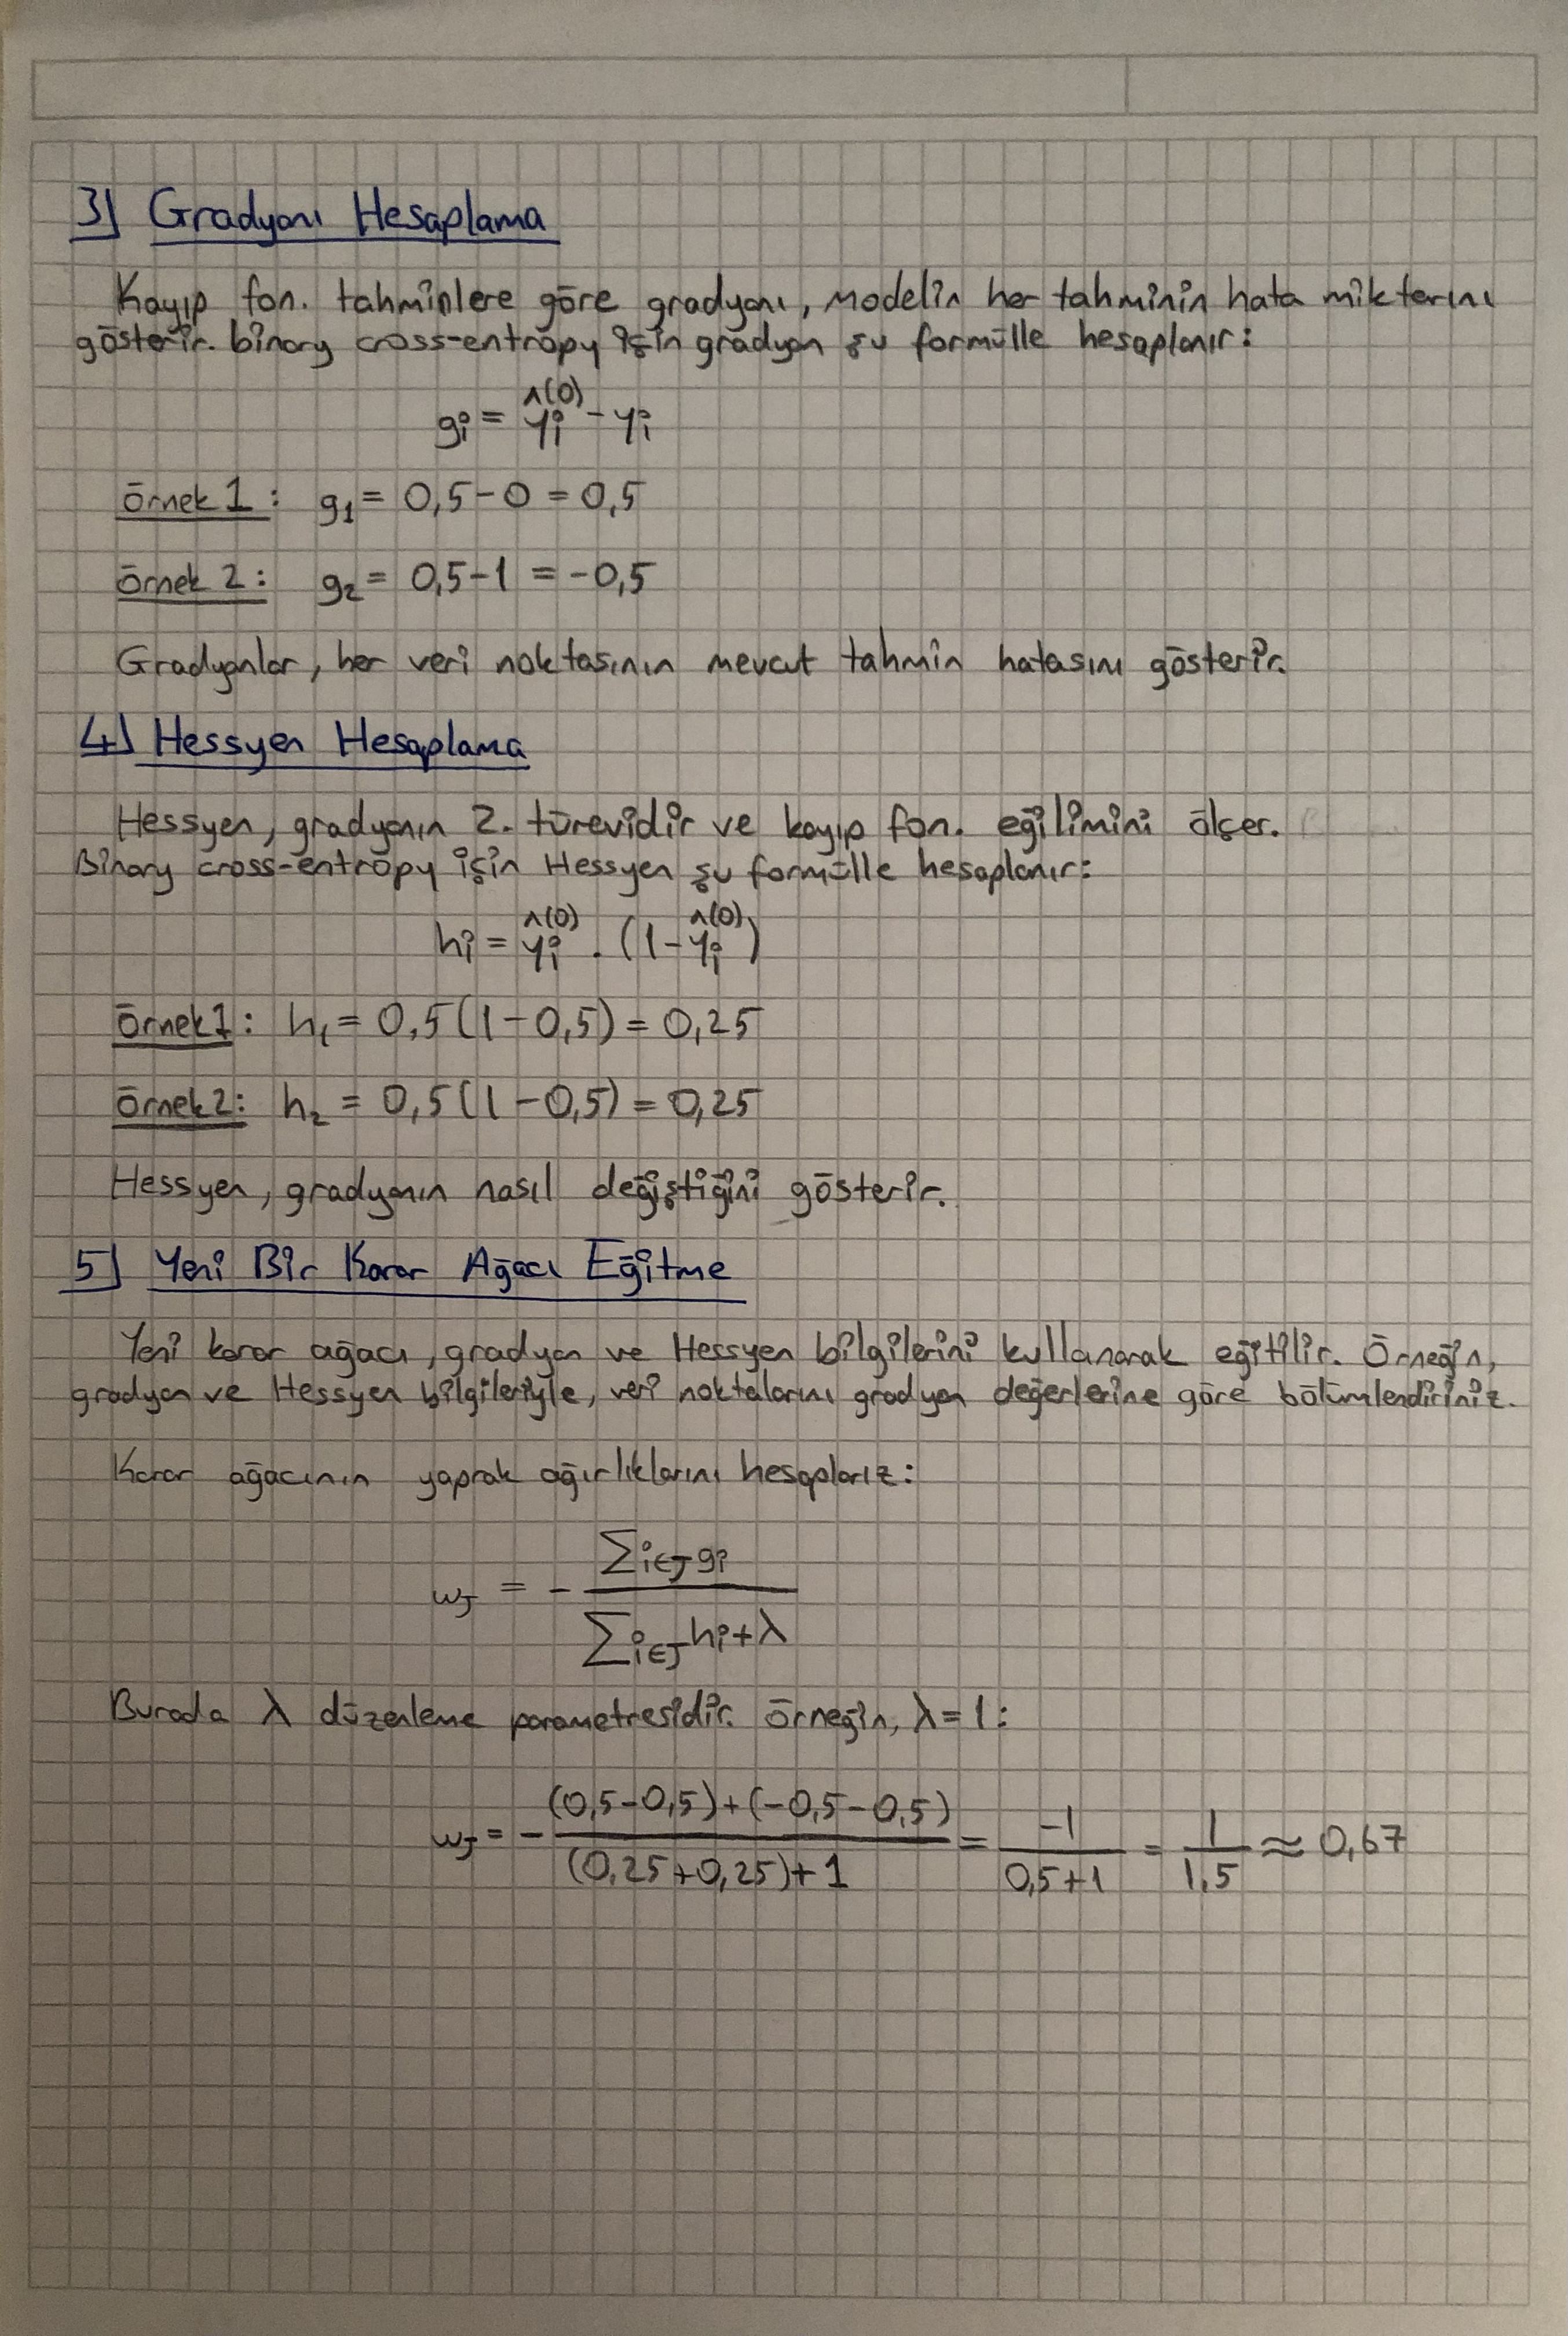 3) Gradyanı Hesaplama
Kayıp fon. tahminlere göre gradyanı, modelin her tahminin hata miktarını
gösterir. binary cross-entropy için gradyan şu formülle hesaplanır:
gᵢ = ŷᵢ⁽⁰⁾ - yᵢ
Örnek 1: g₁ = 0,5 - 0 = 0,5
Örnek 2: g₂ = 0,5 - 1 = -0,5
Gradyanlar, her veri noktasının mevcut tahmin hatasını gösterir.
4) Hessyen Hesaplama
Hessyen, gradyanın 2. türevidir ve kayıp fon. eğilimini ölçer.
Binary cross-entropy için Hessyen şu formülle hesaplanır:
hᵢ = ŷᵢ⁽⁰⁾ . (1 - ŷᵢ⁽⁰⁾)
Örnek 1: h₁ = 0,5(1 - 0,5) = 0,25
Örnek 2: h₂ = 0,5(1 - 0,5) = 0,25
Hessyen, gradyanın nasıl değiştiğini gösterir.
5) Yeni Bir Karar Ağacı Eğitme
Yeni karar ağacı, gradyan ve Hessyen bilgilerini kullanarak eğitilir. Örneğin,
gradyan ve Hessyen bilgileriyle, veri noktalarını gradyan değerlerine göre bölümlendiriniz.
Karar ağacının yaprak ağırlıklarını hesaplarız:
w_J = - (∑_{i∈J} gᵢ) / (∑_{i∈J} hᵢ + λ)
Burada λ düzenleme parametresidir. Örneğin, λ = 1:
w_J = - ((0,5 - 0,5) + (-0,5 - 0,5)) / ((0,25 + 0,25) + 1) = -1 / (0,5 + 1) = 1 / 1,5 ≈ 0,67